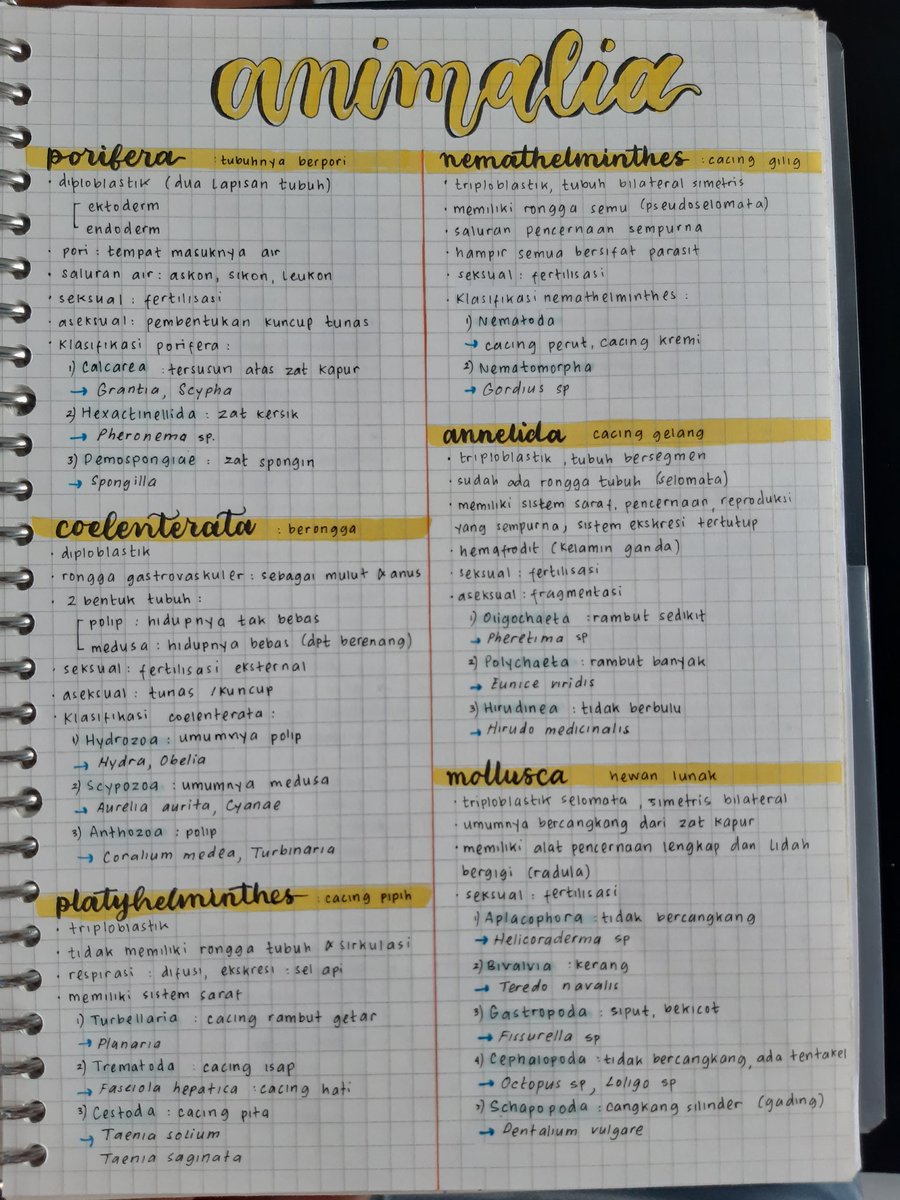 animalia
porifera : tubuhnya berpori
· diploblastik (dua lapisan tubuh)
ektoderm
endoderm
· pori : tempat masuknya air
· saluran air : askon, sikon, leukon
· seksual : fertilisasi
· aseksual : pembentukan kuncup tunas
· klasifikasi porifera :
1) Calcarea : tersusun atas zat kapur
→ Grantia, Scypha
2) Hexactinellida : zat kersik
→ Pheronema sp.
3) Demospongiae : zat spongin
→ Spongilla
coelenterata : berongga
· diploblastik
· rongga gastrovaskuler : sebagai mulut & anus
· 2 bentuk tubuh :
polip : hidupnya tak bebas
medusa : hidupnya bebas (dpt berenang)
· seksual : fertilisasi eksternal
· aseksual : tunas / kuncup
· klasifikasi coelenterata :
1) Hydrozoa : umumnya polip
→ Hydra, Obelia
2) Scypozoa : umumnya medusa
→ Aurelia aurita, Cyanae
3) Anthozoa : polip
→ Coralium medea, Turbinaria
platyhelminthes : cacing pipih
· triploblastik
· tidak memiliki rongga tubuh & sirkulasi
· respirasi : difusi, ekskresi : sel api
· memiliki sistem saraf
1) Turbellaria : cacing rambut getar
→ Planaria
2) Trematoda : cacing isap
→ Fasciola hepatica : cacing hati
3) Cestoda : cacing pita
→ Taenia solium
Taenia saginata
nemathelminthes : cacing gilig
· triploblastik, tubuh bilateral simetris
· memiliki rongga semu (pseudoselomata)
· saluran pencernaan sempurna
· hampir semua bersifat parasit
· seksual : fertilisasi
· klasifikasi nemathelminthes :
1) Nematoda
→ cacing perut, cacing kremi
2) Nematomorpha
→ Gordius sp
annelida cacing gelang
· triploblastik, tubuh bersegmen
· sudah ada rongga tubuh (selomata)
· memiliki sistem saraf, pencernaan, reproduksi
yang sempurna, sistem ekskresi tertutup
· hemafrodit (kelamin ganda)
· seksual : fertilisasi
· aseksual : fragmentasi
1) Oligochaeta : rambut sedikit
→ Pheretima sp
2) Polychaeta : rambut banyak
→ Eunice viridis
3) Hirudinea : tidak berbulu
→ Hirudo medicinalis
mollusca hewan lunak
· triploblastik selomata, simetris bilateral
· umumnya bercangkang dari zat kapur
· memiliki alat pencernaan lengkap dan lidah
bergigi (radula)
· seksual : fertilisasi
1) Aplacophora : tidak bercangkang
→ Helicoraderma sp
2) Bivalvia : kerang
→ Teredo navalis
3) Gastropoda : siput, bekicot
→ Fissurella sp
4) Cephalopoda : tidak bercangkang, ada tentakel
→ Octopus sp, Loligo sp
5) Schapopoda : cangkang silinder (gading)
→ Dentalium vulgare